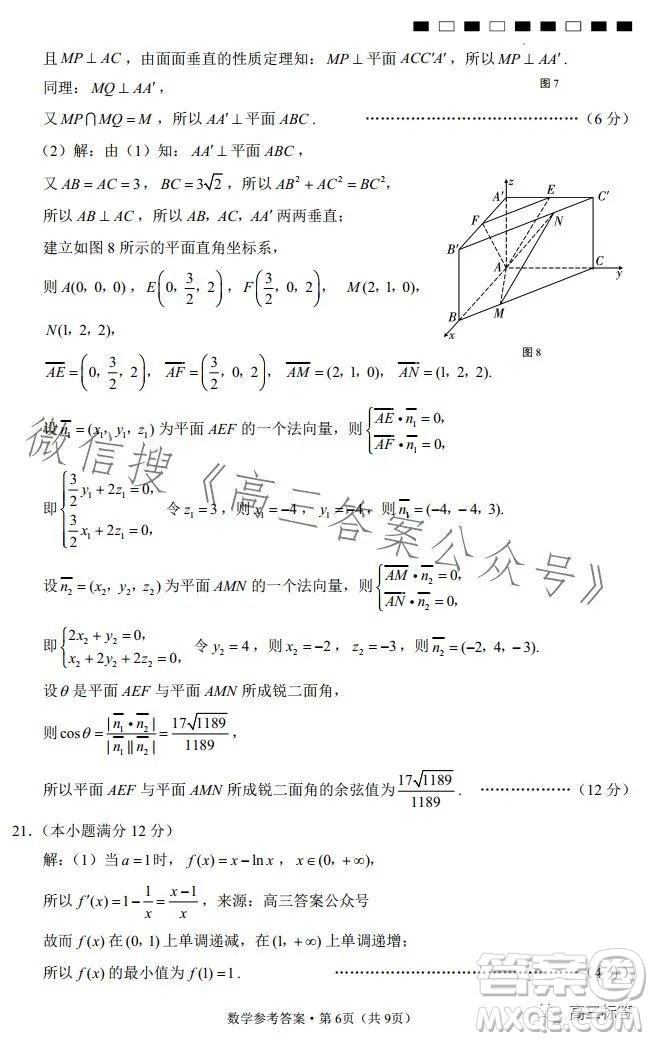 且 MP⊥AC，由面面垂直的性质定理知：MP⊥平面 ACC′A′，所以 MP⊥AA′．
同理：MQ⊥AA′，
图 7
又 MP∩MQ=M，所以 AA′⊥平面 ABC．…………………………………（6 分）
（2）解：由（1）知：AA′⊥平面 ABC，
又 AB=AC=3，BC=3√2，所以 AB²+AC²=BC²，
所以 AB⊥AC，所以 AB，AC，AA′ 两两垂直；
建立如图 8 所示的平面直角坐标系，
则 A(0, 0, 0)，E(0, 3/2, 2)，F(3/2, 0, 2)， M(2, 1, 0)，
N(1, 2, 2)，
z
A′
E
C′
F
N
B′
A
C
y
B
M
x
图 8
AE=(0, 3/2, 2)，AF=(3/2, 0, 2)，AM=(2, 1, 0)，AN=(1, 2, 2).
设 n₁=(x₁, y₁, z₁) 为平面 AEF 的一个法向量，则 {AE·n₁=0， AF·n₁=0，
即 {3/2 y₁+2z₁=0， 3/2 x₁+2z₁=0， 令 z₁=3，则 x₁=−4，y₁=−4，则 n₁=(−4, −4, 3).
设 n₂=(x₂, y₂, z₂) 为平面 AMN 的一个法向量，则 {AM·n₂=0， AN·n₂=0，
即 {2x₂+y₂=0， x₂+2y₂+2z₂=0， 令 y₂=4，则 x₂=−2，z₂=−3，则 n₂=(−2, 4, −3).
设 θ 是平面 AEF 与平面 AMN 所成锐二面角，
则 cosθ=|n₁·n₂|/|n₁||n₂|=17√1189/1189，
所以平面 AEF 与平面 AMN 所成锐二面角的余弦值为 17√1189/1189．………………（12 分）
21．（本小题满分 12 分）
解：（1）当 a=1 时，f(x)=x−ln x，x∈(0, +∞)，
所以 f′(x)=1−1/x=(x−1)/x，来源：高三答案公众号
故而 f(x) 在 (0, 1) 上单调递减，在 (1, +∞) 上单调递增；
所以 f(x) 的最小值为 f(1)=1．…………………………………（4 分）
数学参考答案·第 6页（共 9页）
微信搜《高三答案公众号》
高三标答
答案圈
MXQE.COM